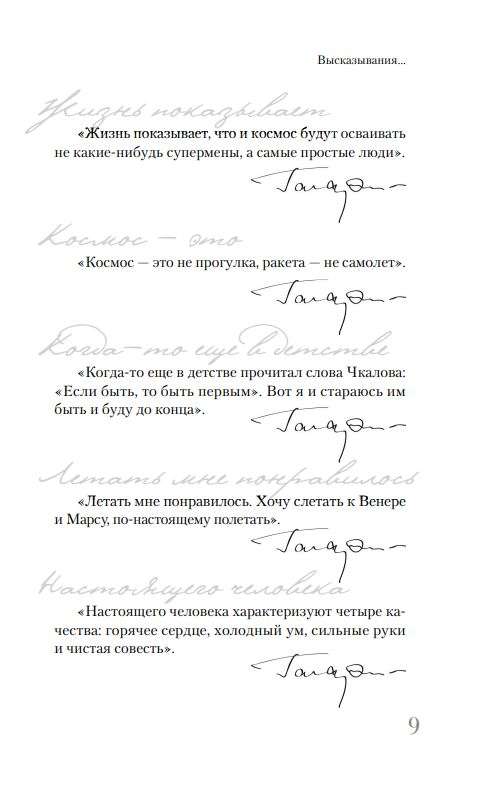 Высказывания...
Жизнь показывает
«Жизнь показывает, что и космос будут осваивать
не какие-нибудь супермены, а самые простые люди».
Гагарин
Космос — это
«Космос — это не прогулка, ракета — не самолет».
Гагарин
Когда-то еще в детстве
«Когда-то еще в детстве прочитал слова Чкалова:
«Если быть, то быть первым». Вот я и стараюсь им
быть и буду до конца».
Гагарин
Летать мне понравилось
«Летать мне понравилось. Хочу слетать к Венере
и Марсу, по-настоящему полетать».
Гагарин
Настоящего человека
«Настоящего человека характеризуют четыре ка-
чества: горячее сердце, холодный ум, сильные руки
и чистая совесть».
Гагарин
9